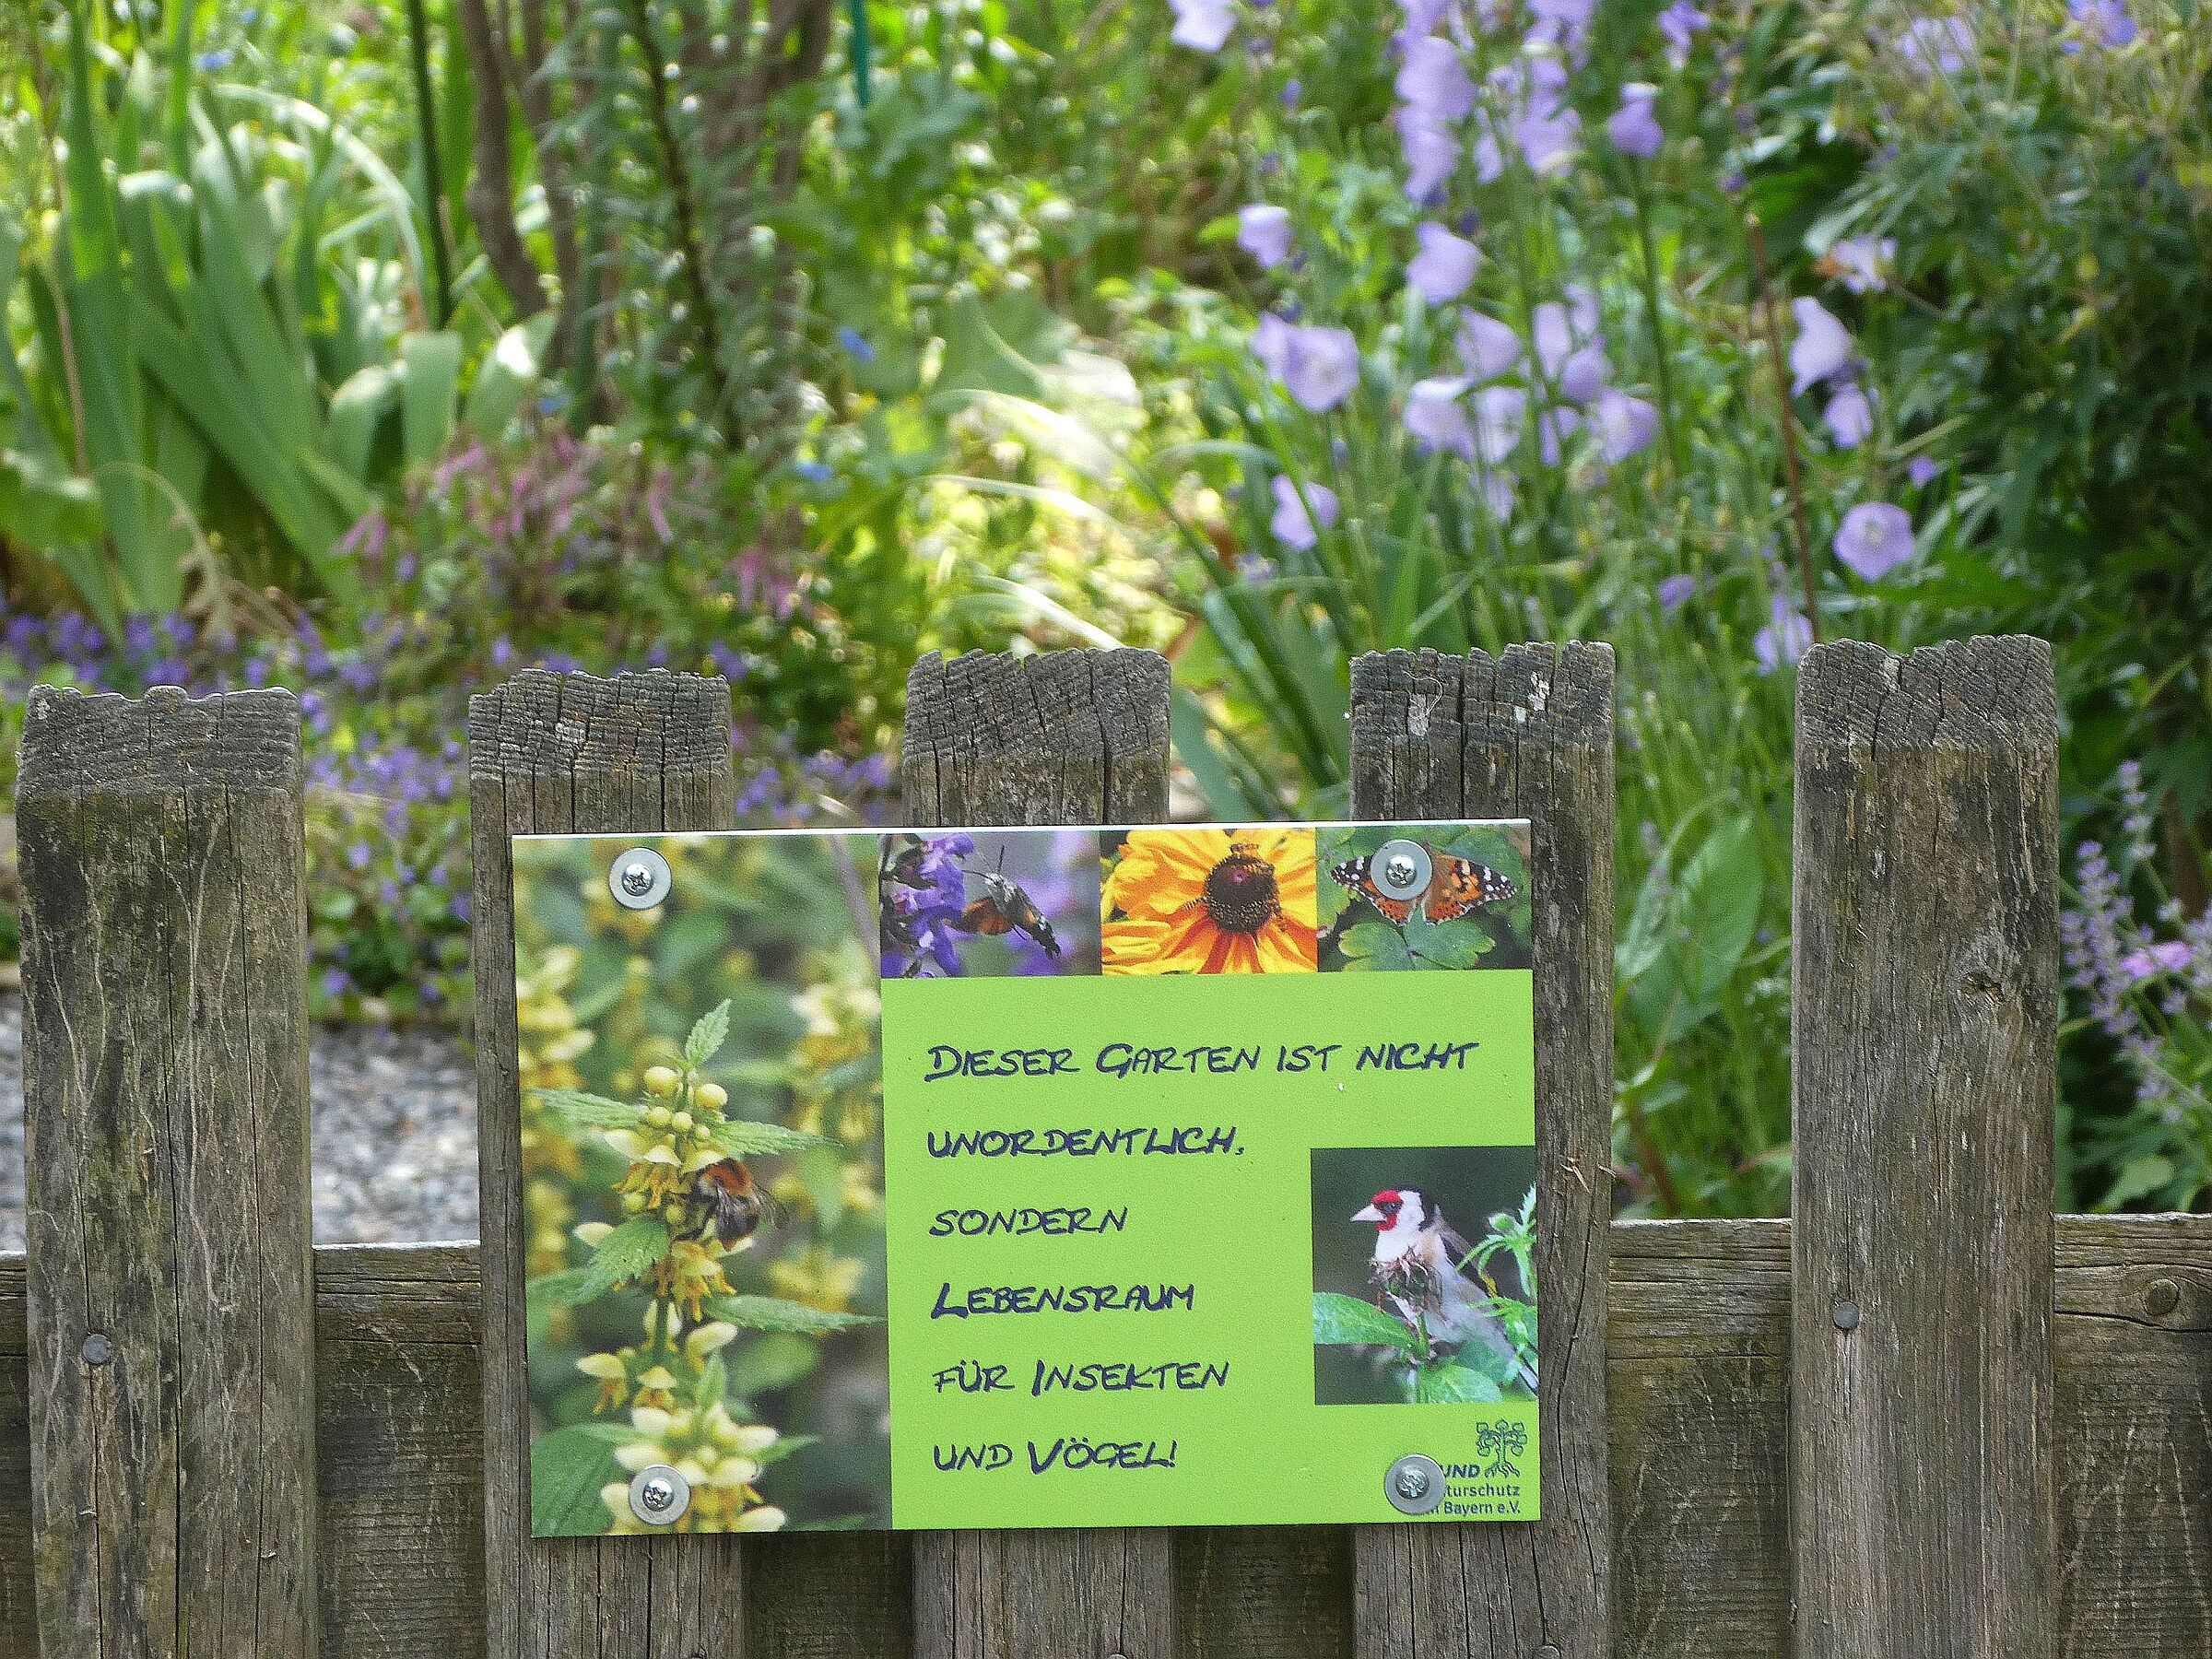 Dieser Garten ist nicht
unordentlich,
sondern
Lebensraum
für Insekten
und Vögel!
Bayern e.V.